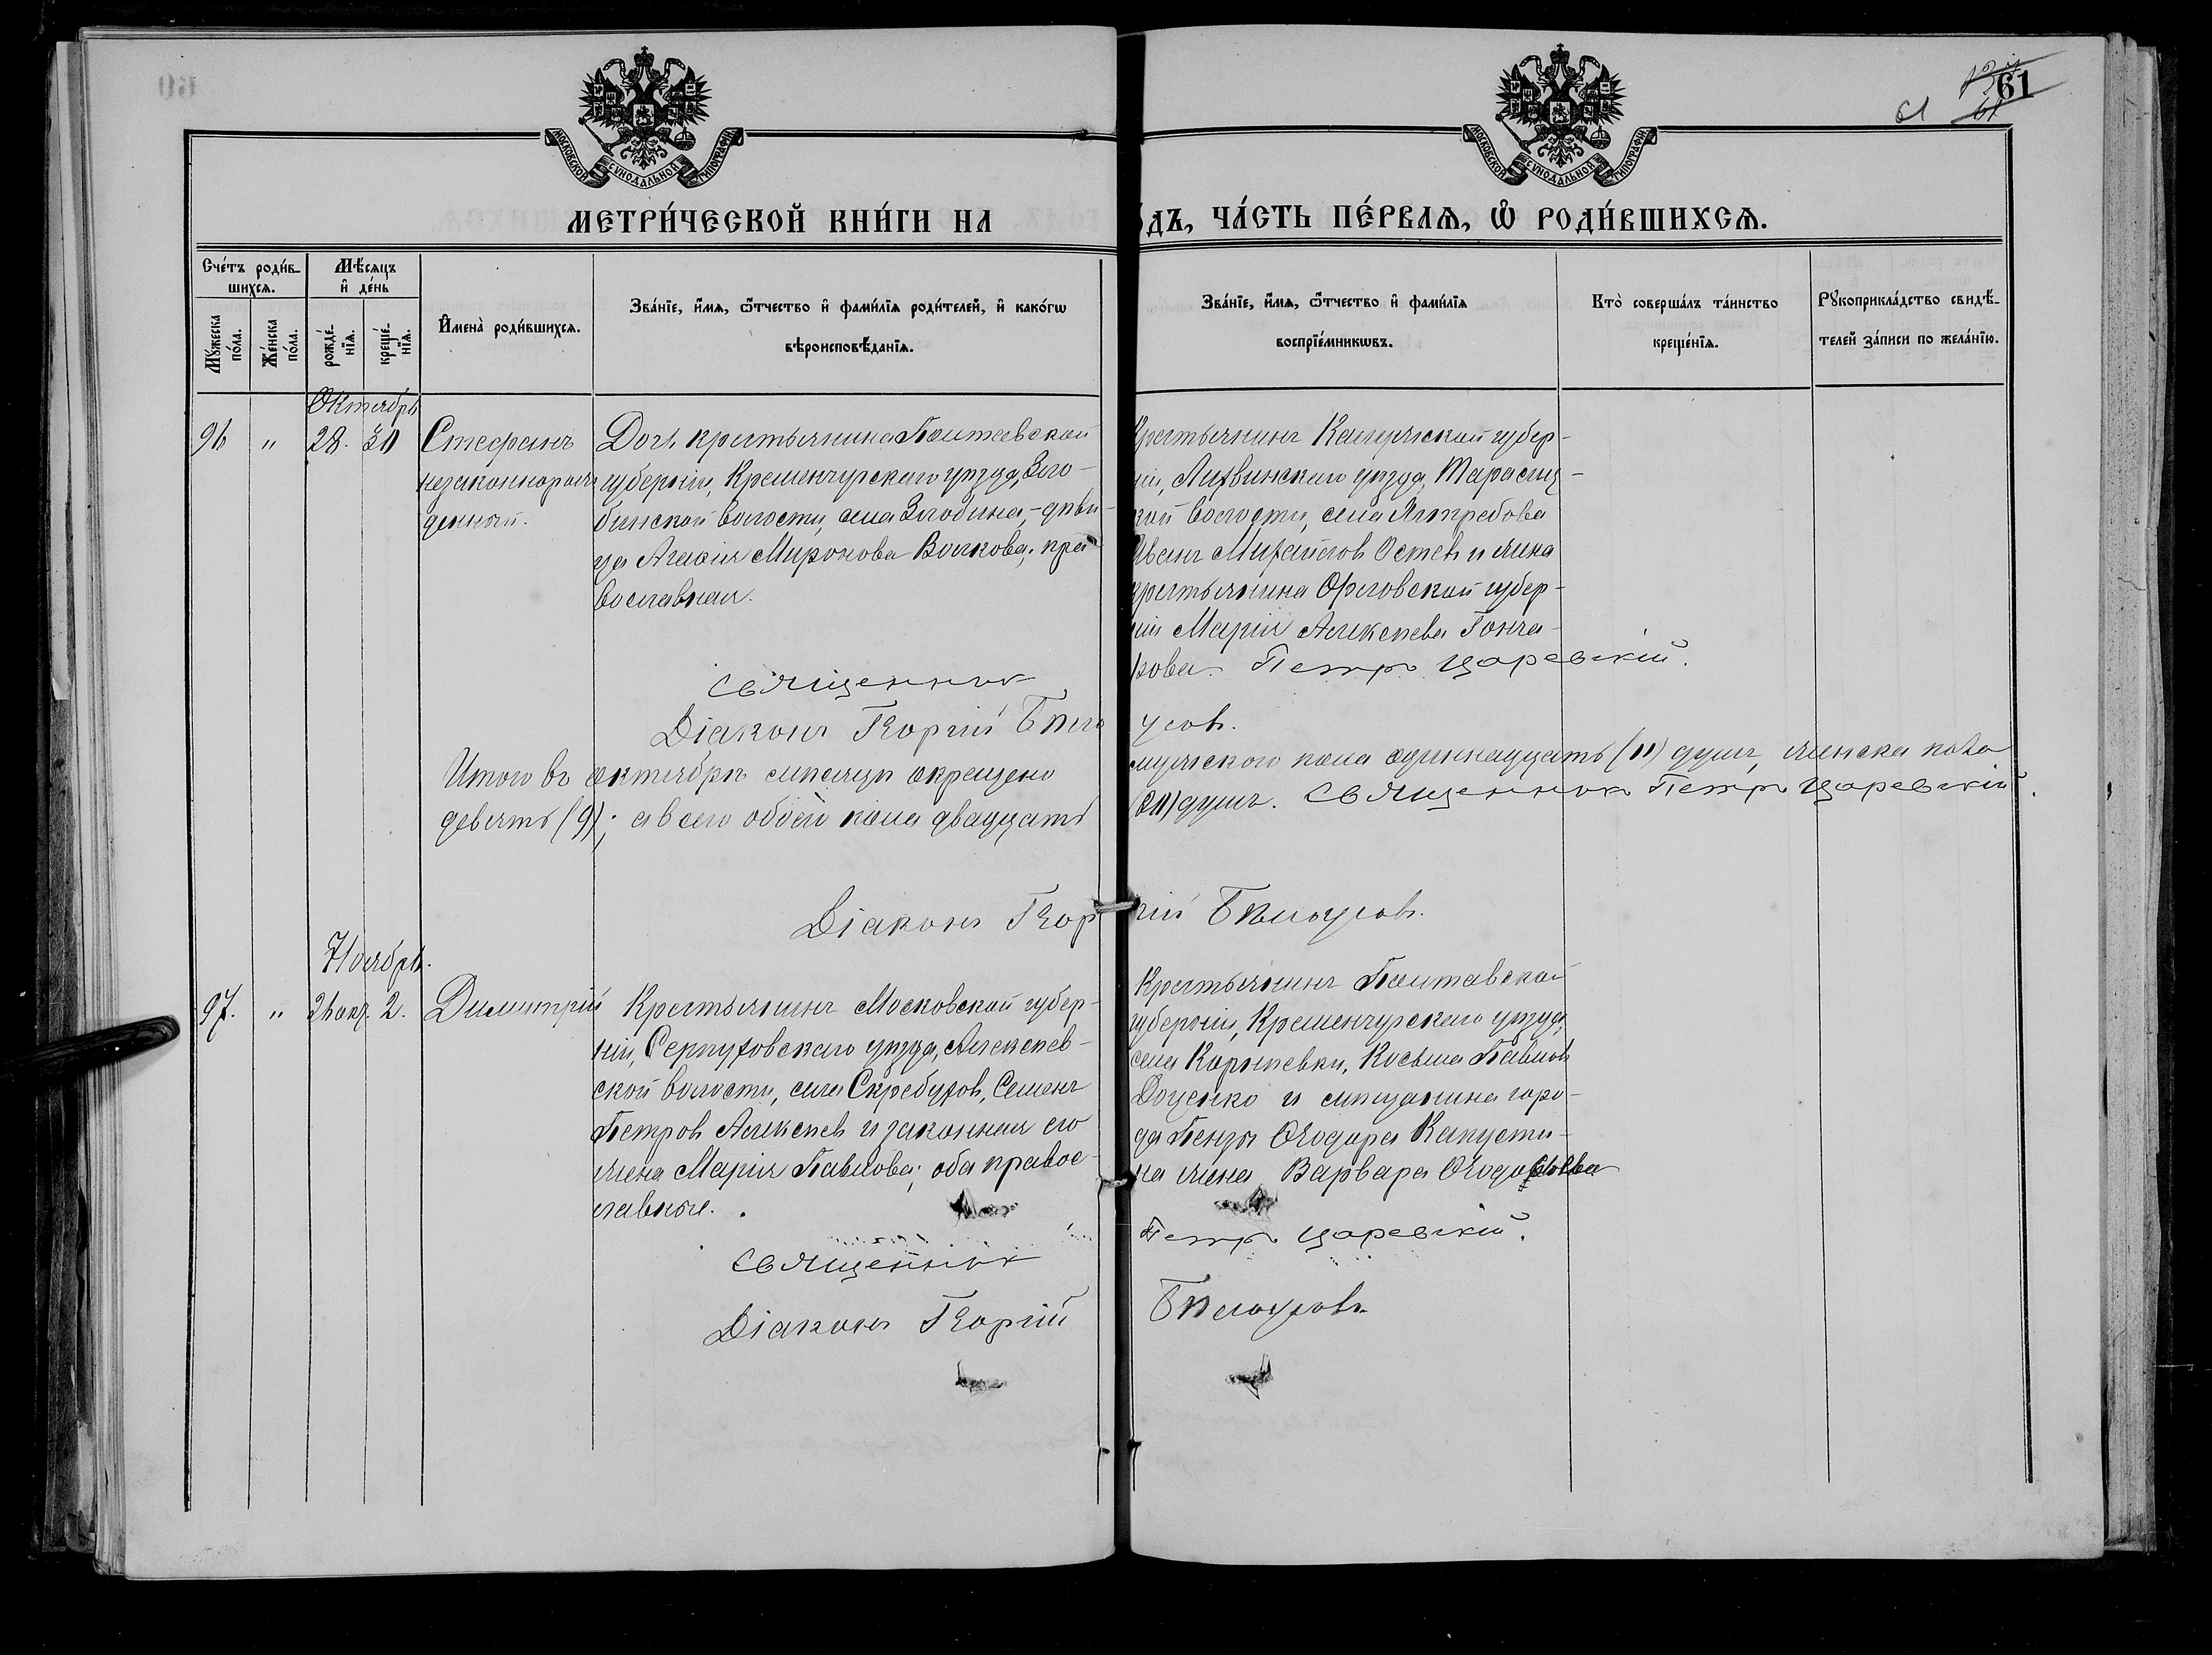 61
61
МОСКОВСКОЙ СУНОДАЛЬНОЙ ТИПОГРАФІИ
МОСКОВСКОЙ СУНОДАЛЬНОЙ ТИПОГРАФІИ
МЕТРИ́ЧЕСКОЙ КНИ́ГИ НА
ДЪ, ЧА́СТЬ ПЕ́РВАѦ, Ѡ҆ РОДИ́ВШИХСѦ.
Сче́тъ роди́в-
шихсѧ.
Мꙋ́жеска
по́ла.
Же́нска
по́ла.
Мѣ́сѧцъ
и҆ де́нь
рожде́-
нїѧ.
креще́-
нїѧ.
И҆мена̀ роди́вшихсѧ.
Зва́нїе, и҆́мѧ, ѻ҆́тчество и҆ фами́лїѧ роди́телей, и҆ како́гѡ
вѣроисповѣ́данїѧ.
Зва́нїе, и҆́мѧ, ѻ҆́тчество и҆ фами́лїѧ
воспрїе́мникѡвъ.
Кто̀ соверша́лъ та́инство
креще́нїѧ.
Рꙋкоприкла́дство свидѣ́-
телей за́писи по жела́нїю.
Октябрь
96 " 28. 30 Стефанъ
незаконнорож-
денный.
Дочь крестьянина Полтавской
губерніи, Кременчугскаго уѣзда,
бинской волости, села - дѣви-
ца Миронова Волкова; пра-
вославная.
Крестьянинъ Калужской губер-
ніи, Лихвинскаго уѣзда,
кой волости, села Ястребова
Иванъ Михайловъ и жена
крестьянина Орловской губер-
ніи Марія Алексѣева Гонча-
рова. Петръ Царевскій.
Священникъ
Діаконъ Георгій Бѣло
усовъ.
Итого въ октябрѣ мѣсяцѣ окрещено
мужского пола одиннадцать (11) душъ, женска пола
девять (9); а всего обоего пола двадцать
(20) душъ. Священникъ Петръ Царевскій.
Діаконъ Геор
гій Бѣлоусовъ.
Ноябрь.
97. " 26 окт. 2. Димитрій
Крестьянинъ Московской губер-
ніи, Серпуховскаго уѣзда, Алексѣев-
ской волости, села Скребухов, Семенъ
Петровъ Алексѣевъ и законная его
жена Марія Павлова; оба правос-
лавные.
Крестьянинъ Полтавской
губерніи, Кременчугскаго уѣзда,
села Косьма Павловъ
Доценко и мѣщанина горо-
да Пензы Ѳеодора Капусти-
на жена Варвара
Петръ Царевскій.
Священникъ
Діаконъ Георгій
Бѣлоусовъ.